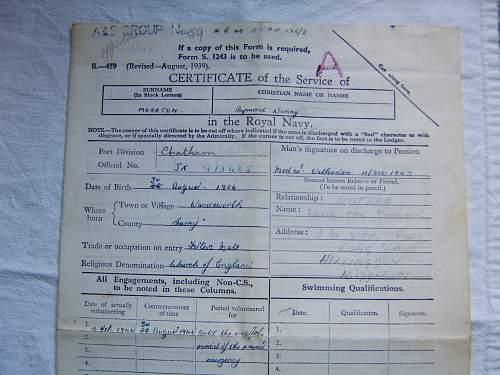 A&S GROUP No 59
If a copy of this Form is required,
Form S. 1243 is to be used.
S.—459 (Revised—August, 1939).
A
Cut along here.
CERTIFICATE of the Service of
SURNAME
(In Block Letters)
CHRISTIAN NAME OR NAMES
MORETON
Raymond
in the Royal Navy.
NOTE.—The corner of this certificate is to be cut off where indicated if the man is discharged with a "Bad" character or with
disgrace, or if specially directed by the Admiralty. If the corner is cut off, the fact is to be noted in the Ledger.
Port Division Chatham
Man's Signature on discharge to Pension
Official No. JX
Nearest known Relative or Friend.
(To be noted in pencil.)
Date of Birth August 1926
Relationship: MOTHER
Where born
Town or Village Wandsworth
County Surrey
Name:
Address:
LONG LANE
HILLINGDON
MIDDLESEX
Trade or occupation on entry
Religious Denomination Church of England
All Engagements, including Non-C.S.,
to be noted in these Columns.
Swimming Qualifications.
Date of actually
volunteering
Commencement
of time
Period volunteered
for
Date.
Qualification.
Signature.
1. August 1944 Until the end of the
1.
2. period of the present
2.
3. emergency
3.
4.